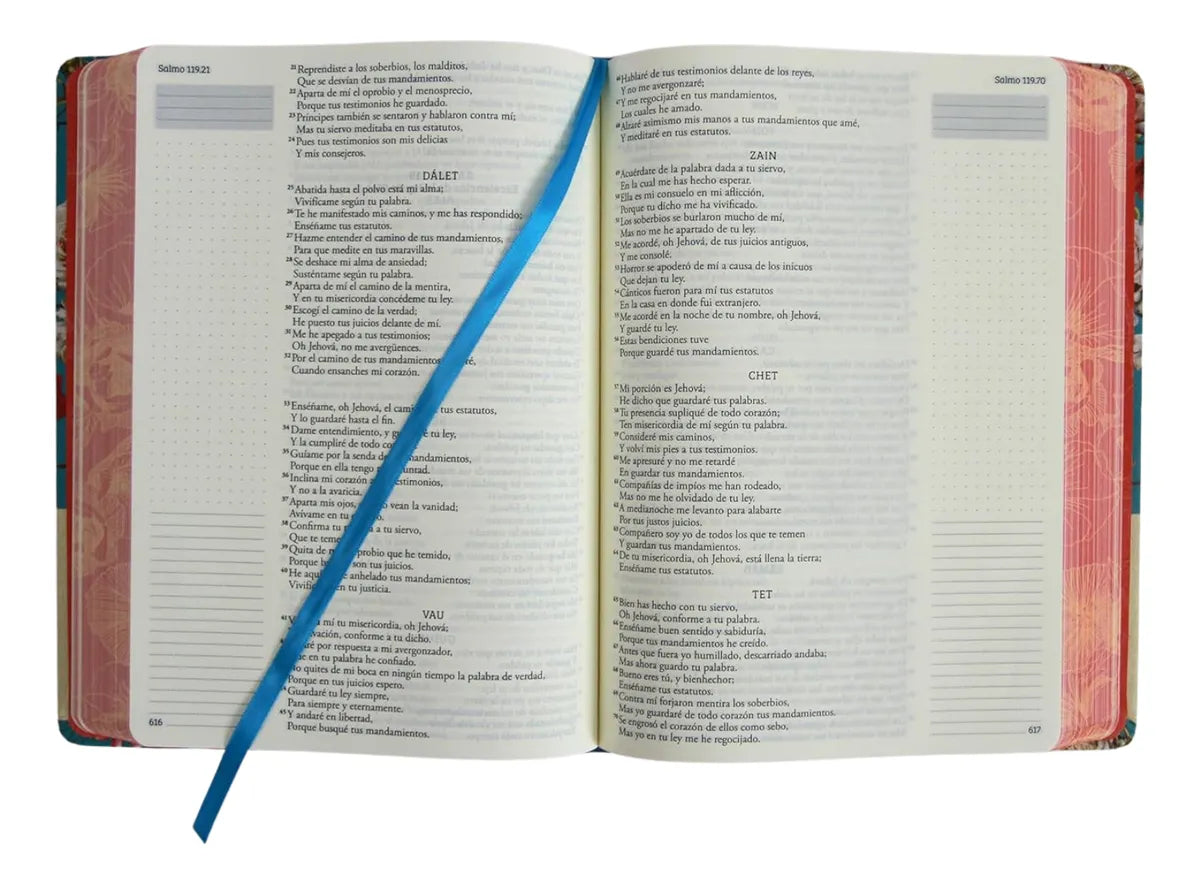 Salmo 119.21
21 Reprendiste a los soberbios, los malditos,
Que se desvían de tus mandamientos.
22 Aparta de mí el oprobio y el menosprecio,
Porque tus testimonios he guardado.
23 Príncipes también se sentaron y hablaron contra mí;
Mas tu siervo meditaba en tus estatutos,
24 Pues tus testimonios son mis delicias
Y mis consejeros.
DÁLET
25 Abatida hasta el polvo está mi alma;
Vivifícame según tu palabra.
26 Te he manifestado mis caminos, y me has respondido;
Enséñame tus estatutos.
27 Hazme entender el camino de tus mandamientos,
Para que medite en tus maravillas.
28 Se deshace mi alma de ansiedad;
Susténtame según tu palabra.
29 Aparta de mí el camino de la mentira,
Y en tu misericordia concédeme tu ley.
30 Escogí el camino de la verdad;
He puesto tus juicios delante de mí.
31 Me he apegado a tus testimonios;
Oh Jehová, no me avergüences.
32 Por el camino de tus mandamientos ré,
Cuando ensanches mi corazón.
33 Enséñame, oh Jehová, el cam de tus estatutos,
Y lo guardaré hasta el fin.
34 Dame entendimiento, y g é tu ley,
Y la cumpliré de todo co
35 Guíame por la senda de mandamientos,
Porque en ella tengo untad.
36 Inclina mi corazón a testimonios,
Y no a la avaricia.
37 Aparta mis ojos, vean la vanidad;
Avívame en tu o.
38 Confirma tu a a tu siervo,
Que te teme
39 Quita de m oprobio que he temido,
Porque b son tus juicios.
40 He aquí anhelado tus mandamientos;
Vivifí en tu justicia.
VAU
41 V a mí tu misericordia, oh Jehová;
vación, conforme a tu dicho.
aré por respuesta a mi avergonzador,
ue en tu palabra he confiado.
No quites de mi boca en ningún tiempo la palabra de verdad,
Porque en tus juicios espero.
44 Guardaré tu ley siempre,
Para siempre y eternamente.
45 Y andaré en libertad,
Porque busqué tus mandamientos.
616
Salmo 119.70
46 Hablaré de tus testimonios delante de los reyes,
Y no me avergonzaré;
47 Y me regocijaré en tus mandamientos,
Los cuales he amado.
48 Alzaré asimismo mis manos a tus mandamientos que amé,
Y meditaré en tus estatutos.
ZAIN
49 Acuérdate de la palabra dada a tu siervo,
En la cual me has hecho esperar.
50 Ella es mi consuelo en mi aflicción,
Porque tu dicho me ha vivificado.
51 Los soberbios se burlaron mucho de mí,
Mas no me he apartado de tu ley.
52 Me acordé, oh Jehová, de tus juicios antiguos,
Y me consolé.
53 Horror se apoderó de mí a causa de los inicuos
Que dejan tu ley.
54 Cánticos fueron para mí tus estatutos
En la casa en donde fui extranjero.
55 Me acordé en la noche de tu nombre, oh Jehová,
Y guardé tu ley.
56 Estas bendiciones tuve
Porque guardé tus mandamientos.
CHET
57 Mi porción es Jehová;
He dicho que guardaré tus palabras.
58 Tu presencia supliqué de todo corazón;
Ten misericordia de mí según tu palabra.
59 Consideré mis caminos,
Y volví mis pies a tus testimonios.
60 Me apresuré y no me retardé
En guardar tus mandamientos.
61 Compañías de impíos me han rodeado,
Mas no me he olvidado de tu ley.
62 A medianoche me levanto para alabarte
Por tus justos juicios.
63 Compañero soy yo de todos los que te temen
Y guardan tus mandamientos.
64 De tu misericordia, oh Jehová, está llena la tierra;
Enséñame tus estatutos.
TET
65 Bien has hecho con tu siervo,
Oh Jehová, conforme a tu palabra.
66 Enséñame buen sentido y sabiduría,
Porque tus mandamientos he creído.
67 Antes que fuera yo humillado, descarriado andaba;
Mas ahora guardo tu palabra.
68 Bueno eres tú, y bienhechor;
Enséñame tus estatutos.
69 Contra mí forjaron mentira los soberbios,
Mas yo guardaré de todo corazón tus mandamientos.
70 Se engrosó el corazón de ellos como sebo,
Mas yo en tu ley me he regocijado.
617